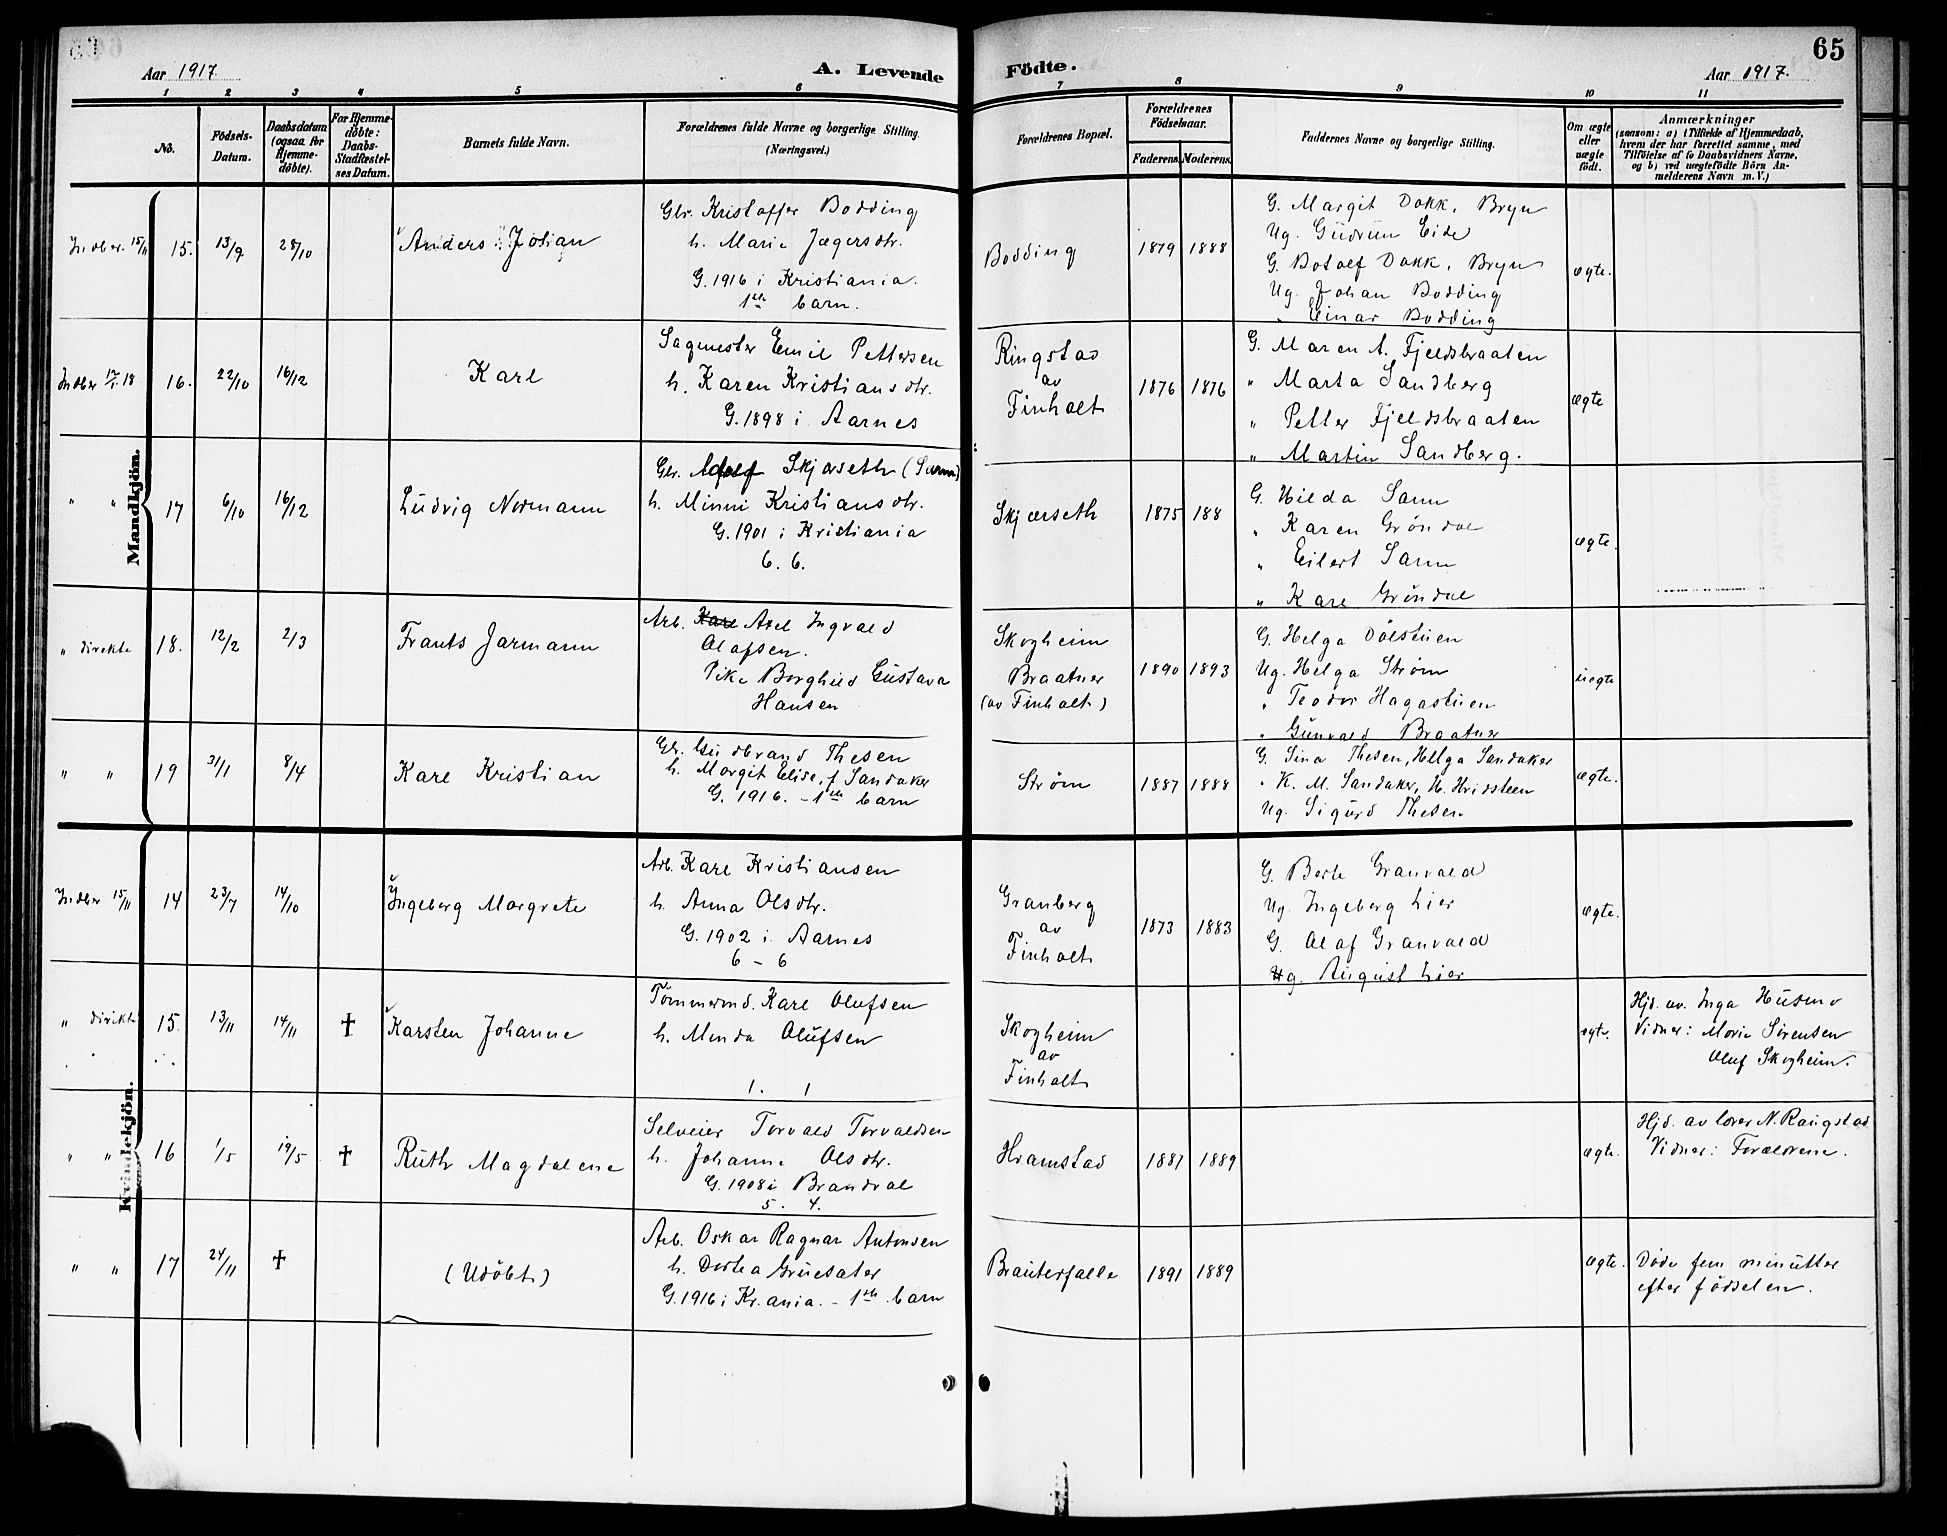 65
Aar 1917.
A. Levende
Födte.
Aar 1917.
1 2 3 4 5 6 7 8 9 10 11
No.
Födsels-Datum.
Daabsdatum (ogsaa for Hjemme-döbte).
For Hjemme-döbte: Daabs-Stadfæstel-ses Datum.
Barnets fulde Navn.
Forældrenes fulde Navne og borgerlige Stilling.
(Næringsvei.)
Forældrenes Bopæl.
Forældrenes Födselsaar.
Faderens. Moderens.
Faddernes Navne og borgerlige Stilling.
Om ægte eller uægte födt.
Anmærkninger
(saasom: a) i Tilfælde af Hjemmedaab,
hvem der har forrettet samme, med
Tilföielse af to Daabsvidners Navne,
og b) ved uægtefödte Börn An-
melderens Navn m. V.)
Mandkjön.
Indber. 15/11 15. 13/9 28/10 Anders Johan
Gbr. Kristoffer Bodding
h. Marie Jægersdtr.
G. 1916 i Kristiania.
1ste barn.
Bodding 1879 1888
G. Margit Dokk, Bryn
Ug. Gudrun Eide
G. Botolf Dokk, Bryn
Ug. Johan Bodding
" Einar Bodding
ægte.
Indber 17/1 18 16. 22/10 16/12 Karl
Sagmester Emil Pettersen
h. Karen Kristiansdtr.
G. 1898 i Aarnes
Ringstad
av
Finholt
1876 1876
G. Maren A. Fjeldsbraaten
" Marta Sandberg
" Petter Fjeldsbraaten
" Martin Sandberg.
ægte
" " 17 6/10 16/12 Ludvig Normann
Gbr. Adolf Skjæseth (Sunn)
h. Minni Kristiansdtr.
G. 1901 i Kristiania
6. 6.
Skjærseth 1875 188
G. Hilda Sann
" Karen Gröndal
" Eilert Sann
" Karl Gröndal
ægte.
" direkte 18. 12/2 2/3 Frants Jarmann
Arb. Karl Axel Ingvald
Olafsen.
Pike Borghild Gustava
Hansen
Skogheim
Braatner
(av Finholt)
1890 1893
G. Helga Dölstuen
Ug. Helga Strøm
" Teodor Hagastuen
" Gunvald Braatner
uegte
" " 19 31/1 8/4 Karl Kristian
Gbr. Gudbrand Thesen
h. Margit Elise, f. Sandaker
G. 1916. - 1ste barn
Strøm 1887 1888
G. Sina Thesen, Helga Sandaker
" K. M. Sandaker, H. Hvidsteen
Ug. Sigurd Thesen
ægte.
Kvindekjön.
Indber 15/11 14 23/7 14/10 Ingeberg Margrete
Arb. Karl Kristiansen
h. Anna Olsdtr.
G. 1902 i Aarnes
6 - 6
Granberg
av
Finholt
1873 1883
G. Berte Granvald
Ug. Ingeberg Lier
G. Olaf Granvald
Ug. August Lier
ægte.
" direkte 15. 13/11 14/11 † Karsten Johanne
Tömmermd. Karl Olufsen
h. Minda Olufsen
1. 1
Skogheim
av
Finholt
egte.
Hjd. av. Inga Husmo
Vidner: Marie Sørensen
Oluf Skogheim.
" " 16 1/5 19/5 † Ruth Magdalene
Selveier Torvald Torvaldsen
h. Johanne Olsdtr.
G. 1908 i Brandval
5. 4.
Hramstad 1887 1889
ægte.
Hjd. av lærer N. Raugstad
Vidner: Forældrene.
" " 17 24/11 † (Udöbt)
Arb. Oskar Ragnar Antonsen
h. Dortea Gruesater
G. 1916 i Kr.ania. - 1ste barn
Brauterfalle 1891 1889
ægte.
Döde fem minutter
efter födselen.